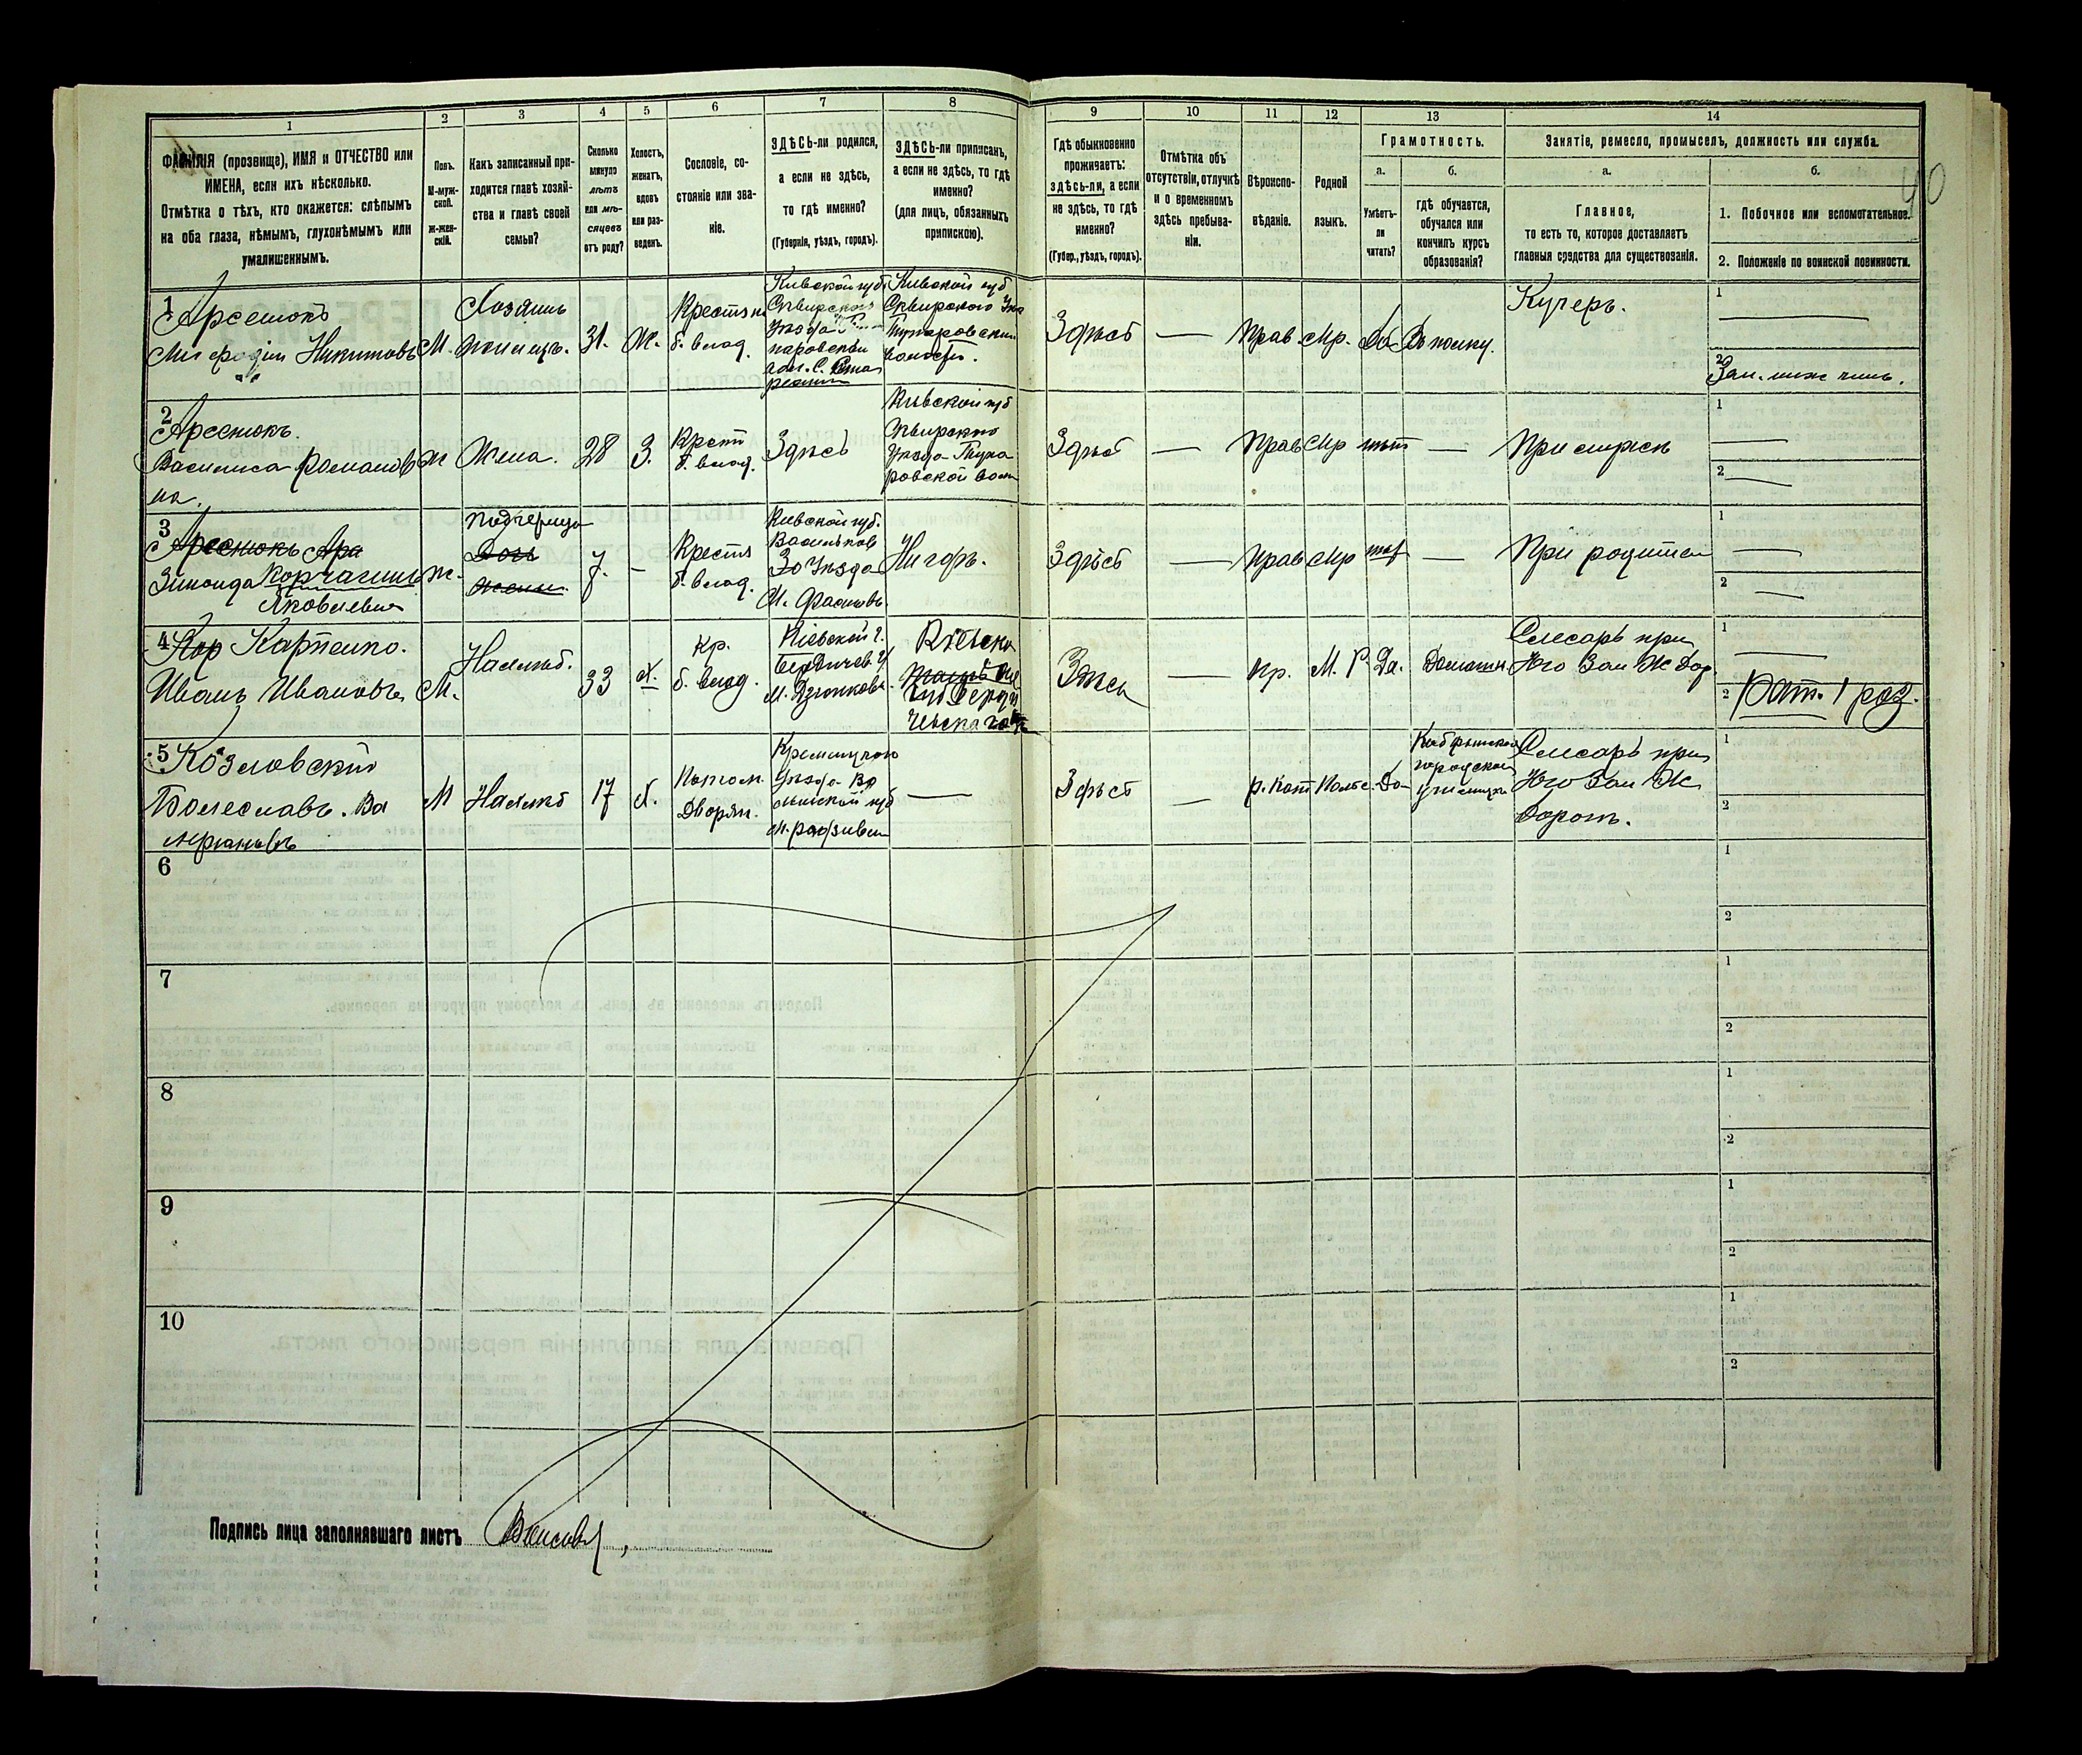 1
2
3
4
5
6
7
8
9
10
11
12
13
14
ФАМИЛІЯ (прозвище), ИМЯ и ОТЧЕСТВО или
ИМЕНА, если ихъ нѣсколько.
Отмѣтка о тѣхъ, кто окажется: слѣпымъ
на оба глаза, нѣмымъ, глухонѣмымъ или
умалишеннымъ.
Полъ.
М-муж-
ской.
Ж-жен-
скій.
Какъ записанный при-
ходится главѣ хозяй-
ства и главѣ своей
семьи?
Сколько
минуло
лѣтъ
или мѣ-
сяцевъ
отъ роду?
Холостъ,
женатъ,
вдовъ
или раз-
веденъ.
Сословіе, со-
стояніе или зва-
ніе.
ЗДѢСЬ-ли родился,
а если не здѣсь,
то гдѣ именно?
(Губернія, уѣздъ, городъ).
ЗДѢСЬ-ли приписанъ,
а если не здѣсь, то гдѣ
именно?
(для лицъ, обязанныхъ
припискою).
Гдѣ обыкновенно
проживаетъ:
здѣсь-ли, а если
не здѣсь, то гдѣ
именно?
(Губер., уѣздъ, городъ).
Отмѣтка объ
отсутствіи, отлучкѣ
и о временномъ
здѣсь пребыва-
ніи.
Вѣроиспо-
вѣданіе.
Родной
языкъ.
Грамотность.
а.
Умѣетъ-
ли
читать?
б.
гдѣ обучается,
обучался или
кончилъ курсъ
образованія?
Занятіе, ремесло, промыселъ, должность или служба.
а.
Главное,
то есть то, которое доставляетъ
главныя средства для существованія.
б.
1. Побочное или вспомогательное.
2. Положеніе по воинской повинности.
40
1
Арсенюкъ
Никитовъ
М.
Хозяинъ
31.
Ж.
б. влад.
Кіевской губ
Сквирскаго
Кіевской губ
Сквирскаго
волости.
Здѣсь
—
Прав.
Мр.
Да
Въ полку.
Кучеръ.
1
2
Зап. ниж чинъ.
2
Арсенюкъ.
Василиса Романов
на.
Ж
Жена.
28
З.
Крест
б. влад.
Здѣсь
Кіевской губ
Сквирскаго
Уѣзда
ровской вол
Здѣсь
—
Прав
Мр
нѣт
—
При мужѣ
1
2
3
Арсенюкъ
Зинаида Корчагина
Яковлевна
Ж.
Падчерица
Дочь
жены.
7.
—
Крест
б. влад.
Кіевской губ.
Васильков
Уѣзда
М. Фастовъ
Нигдѣ.
Здѣсь
—
Прав
Мр
нѣт
—
При родител
1
2
4
Кор Карпенко.
Иванъ Ивановъ
М.
Нахлѣб.
33
Х.
Кр.
б. влад.
Кіевской г.
Бердичев У
М. Дзюнковъ.
Кіевской
губ Берди
Здѣсь
—
Пр.
М. Р.
Да.
Домашн.
Слесарь при
Юго Зап Ж Дор.
1
2
Рат. 1 раз.
5
Козловскій
Болеславъ. Ва
леріановъ
М
Нахлѣб
17
Х.
Потом.
Дворян.
Кременецкаго
Уѣзда Во
лынской губ
—
Здѣсь
—
р. Кат
Польс.
Да
городское
училище
Слесарь при
Юго Зап Ж
Дорогѣ.
1
2
6
1
2
7
1
2
8
1
2
9
1
2
10
1
2
Подпись лица заполнявшаго листъ